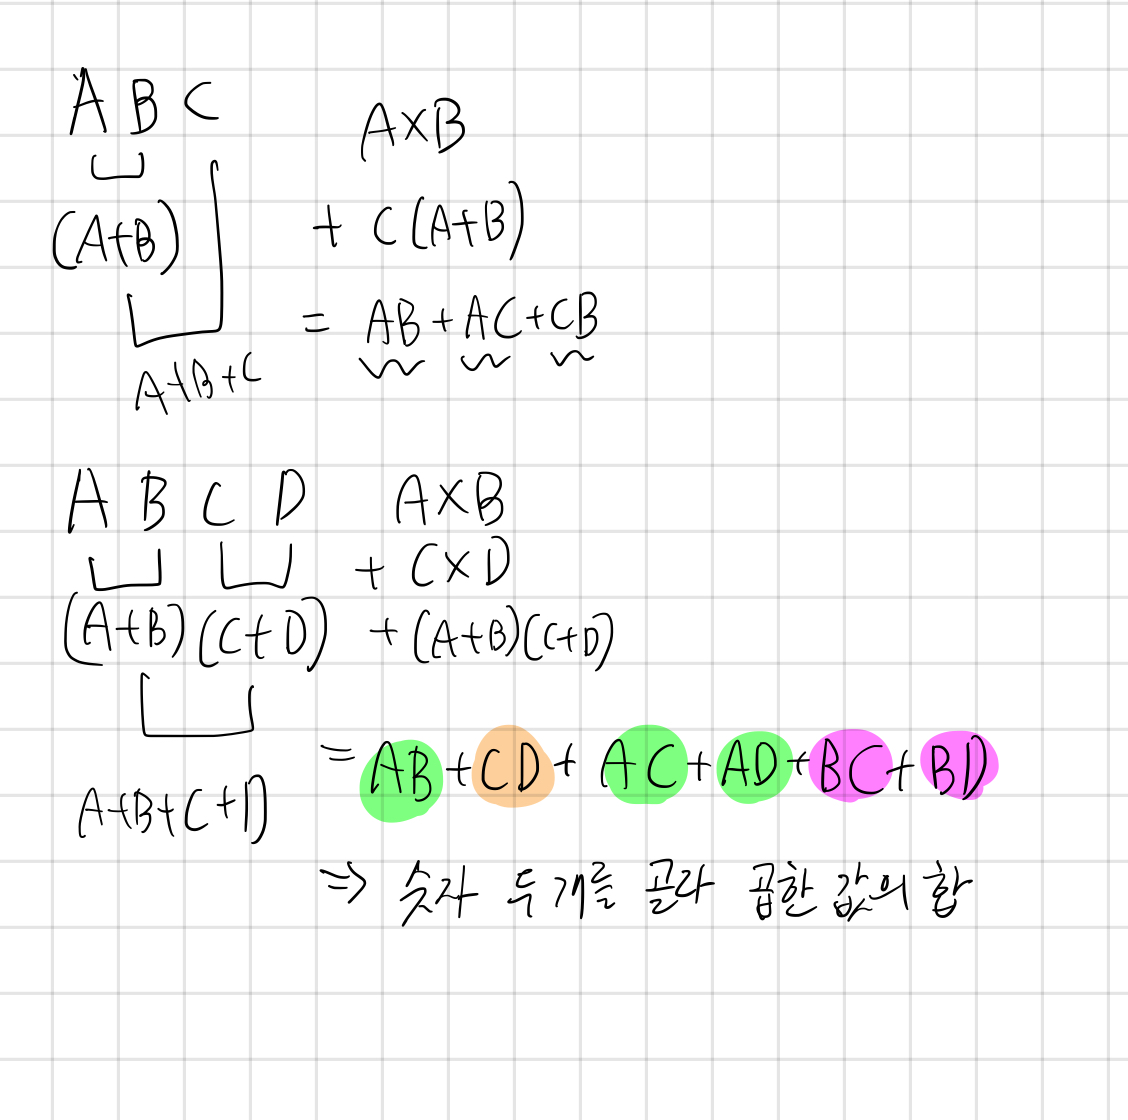 A B C
A×B
(A+B)
+ C(A+B)
= AB+AC+CB
A+B+C
A B C D
A×B
+ C×D
(A+B)(C+D)
+(A+B)(C+D)
=AB+CD+AC+AD+BC+BD
A+B+C+D
⇒ 숫자 두 개를 골라 곱한 값의 합